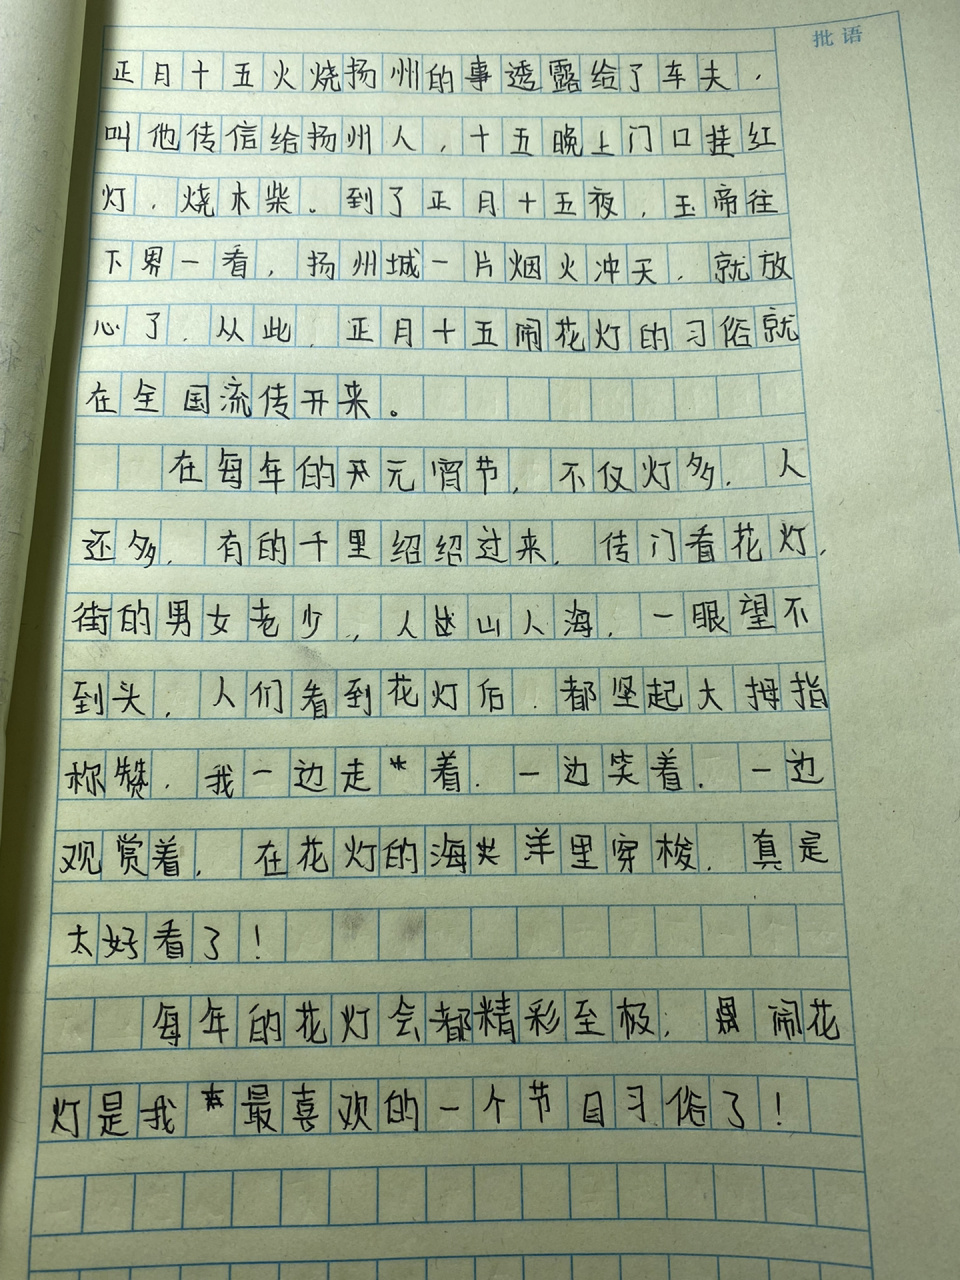 批语
正月十五火烧扬州的事透露给了车夫，
叫他传信给扬州人，十五晚上门口挂红
灯，烧木柴。到了正月十五夜，玉帝往
下界一看，扬州城一片烟火冲天，就放
心了，从此，正月十五闹花灯的习俗就
在全国流传开来。
在每年的元宵节，不仅灯多，人
还多，有的千里绍绍过来，传门看花灯，
街的男女老少，人山人海，一眼望不
到头，人们看到花灯后，都坚起大拇指
称赞，我一边走着，一边笑着，一边
观赏着，在花灯的海洋里穿梭，真是
太好看了！
每年的花灯会都精彩至极，闹花
灯是我最喜欢的一个节目习俗了！